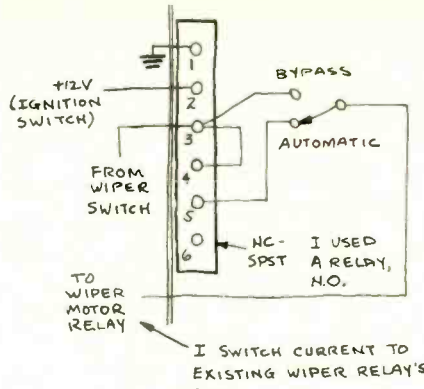 1
+12V
(IGNITION
SWITCH)
2
BYPASS
3
AUTOMATIC
FROM
WIPER
SWITCH
4
5
6
NC-
SPST
I USED
A RELAY,
N.O.
TO
WIPER
MOTOR
RELAY
I SWITCH CURRENT TO
EXISTING WIPER RELAY'S